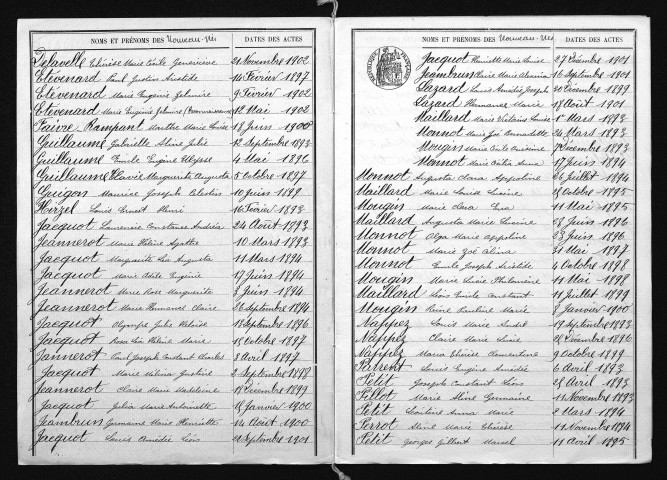 NOMS ET PRÉNOMS DES Nouveau-Nés DATES DES ACTES
Delavelle Thérèse Marie Cécile Geneviève 21 Novembre 1902
Etévenard Paul Justin Aristide 14 Février 1897
Etévenard Marie Eugénie Zelmire 9 Février 1902
Etévenard Marie Eugénie Zelmire 12 Mai 1902
Faivre Rampant Marthe Marie Louise 13 Juin 1900
Guillaume Gabrielle Aline Julie 12 Septembre 1893
Guillaume Emile Eugène Ulysse 4 Mai 1896
Guillaume Flavie Marguerite Augusta 5 Octobre 1897
Guigon Maurice Joseph Célestin 10 Juin 1899
Hirzel Louis Ernest Henri 16 Février 1893
Jacquot Laurencie Constance Andréa 24 Août 1893
Jeannerot Marie Hélène Agathe 10 Mars 1893
Jacquot Marguerite Léa Augusta 11 Mars 1894
Jacquot Marie Adèle Eugénie 17 Juin 1894
Jeannerot Marie Rose Marguerite 3 Juin 1894
Jeannerot Marie Hermance Claire 26 Septembre 1894
Jacquot Olympe Julie Héloïse 13 Septembre 1896
Jacquot Rosa Léa Hélène Marie 15 Octobre 1897
Jannerot Paul Joseph Constant Charles 8 Avril 1897
Jacquot Marie Mélina Justine 2 Septembre 1898
Jeannerot Claire Marie Madeleine 19 Décembre 1899
Jacquot Julia Marie Antoinette 18 Janvier 1900
Jeambrun Germaine Marie Henriette 14 Août 1900
Jacquot Louis Amédée Léon 21 Septembre 1901
NOMS ET PRÉNOMS DES Nouveau-Nés DATES DES ACTES
Jacquot Henriette Marie Louise 27 Décembre 1901
Jeambrun Marie 16 Septembre 1901
Lazard Louis Amédée Joseph 30 Décembre 1899
Lazard Hermance Marie 18 Août 1901
Maillard Marie Victorine Louise 1er Mars 1893
Monnot Marie Zoé Bernadette 26 Mars 1893
Mougin Marie Cécile 7 Décembre 1893
Monnot Marie Anna 17 Juin 1894
Monnot Augusta Clara Appoline 26 Juillet 1894
Maillard Marie Louise Lucine 28 Octobre 1895
Mougin Marie Léa 11 Mai 1895
Maillard Augusta Marie Lucine 28 Juin 1896
Monnot Olga Marie Appoline 23 Juin 1896
Monnot Marie Zoé Alina 31 Mai 1897
Monnot Emile Joseph Aristide 4 Octobre 1898
Mougin Marie Lucie Philomène 11 Mai 1898
Maillard Léon Emile Constant 11 Juillet 1899
Mougin Reine Pauline Marie 8 Janvier 1900
Nappez Louis Marie André 19 Septembre 1893
Nappez Claire Marie Line 26 Décembre 1896
Nappez Maria Thérèse Clémentine 9 Octobre 1899
Parrent Louis Eugène Amédée 6 Avril 1893
Petit Joseph Constant Léon 28 Avril 1893
Pillot Marie Aline Germaine 11 Novembre 1893
Petit Léontine Anna Marie 2 Mars 1894
Perrot Aline Marie Thérèse 11 Novembre 1894
Petit Georges Gilbert Marcel 11 Avril 1895